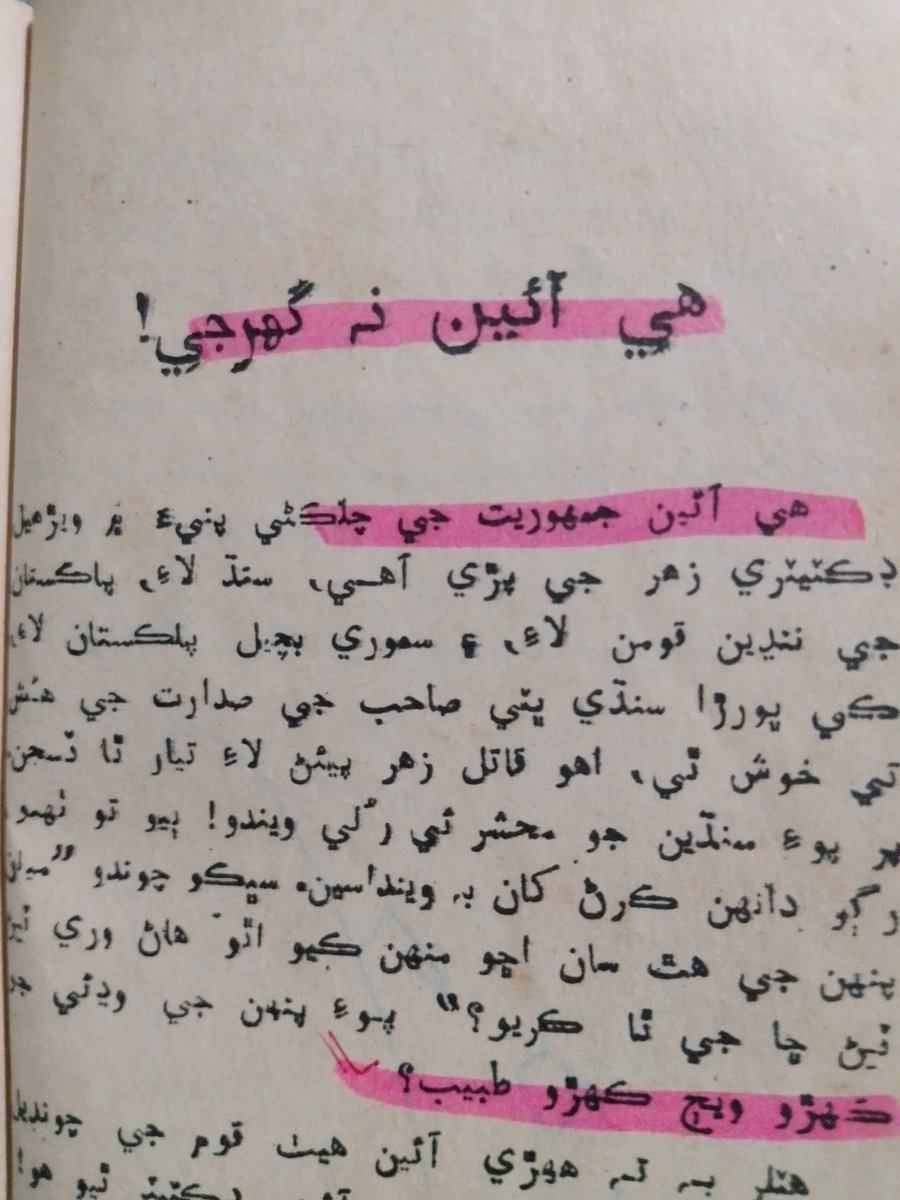 هي آئين نہ گهرجي!
هي آئين جمهوريت جي چلڪڻي پنيءَ ۾ ويڙهيل
ڊڪٽيٽري زهر جي پڙي آهي، سنڌ لاءِ، پاڪستان
جي ننڍين قومن لاءِ، ۽ سموري بچيل پاڪستان لاءِ
ڪي ڀورڙا سنڌي ڀٽي صاحب جي صدارت جي
تي خوش ٿي، اهو قاتل زهر پيئڻ لاءِ تيار ٿا ڏسجن
پر پوءِ سنڌين جو محشر ئي رُلي ويندو! ٻيو تو ٺهيو
رڳو دانهن ڪرڻ کان بہ وينداسين. سڀڪو چوندو ”ميان
پنهن جي هٿ سان اڇو منهن ڪيو اٿو هاڻ وري
ٿيڻ ڇا جي ٿا ڪريو؟“ پوءِ پنهن جي وڍئي جو
ڪهڙو ويڄ ڪهڙو طبيب؟
هٽلر بہ تہ ههڙي آئين هيٺ قوم جي چونڊيل
ڊڪٽيٽر ٿيو هو!